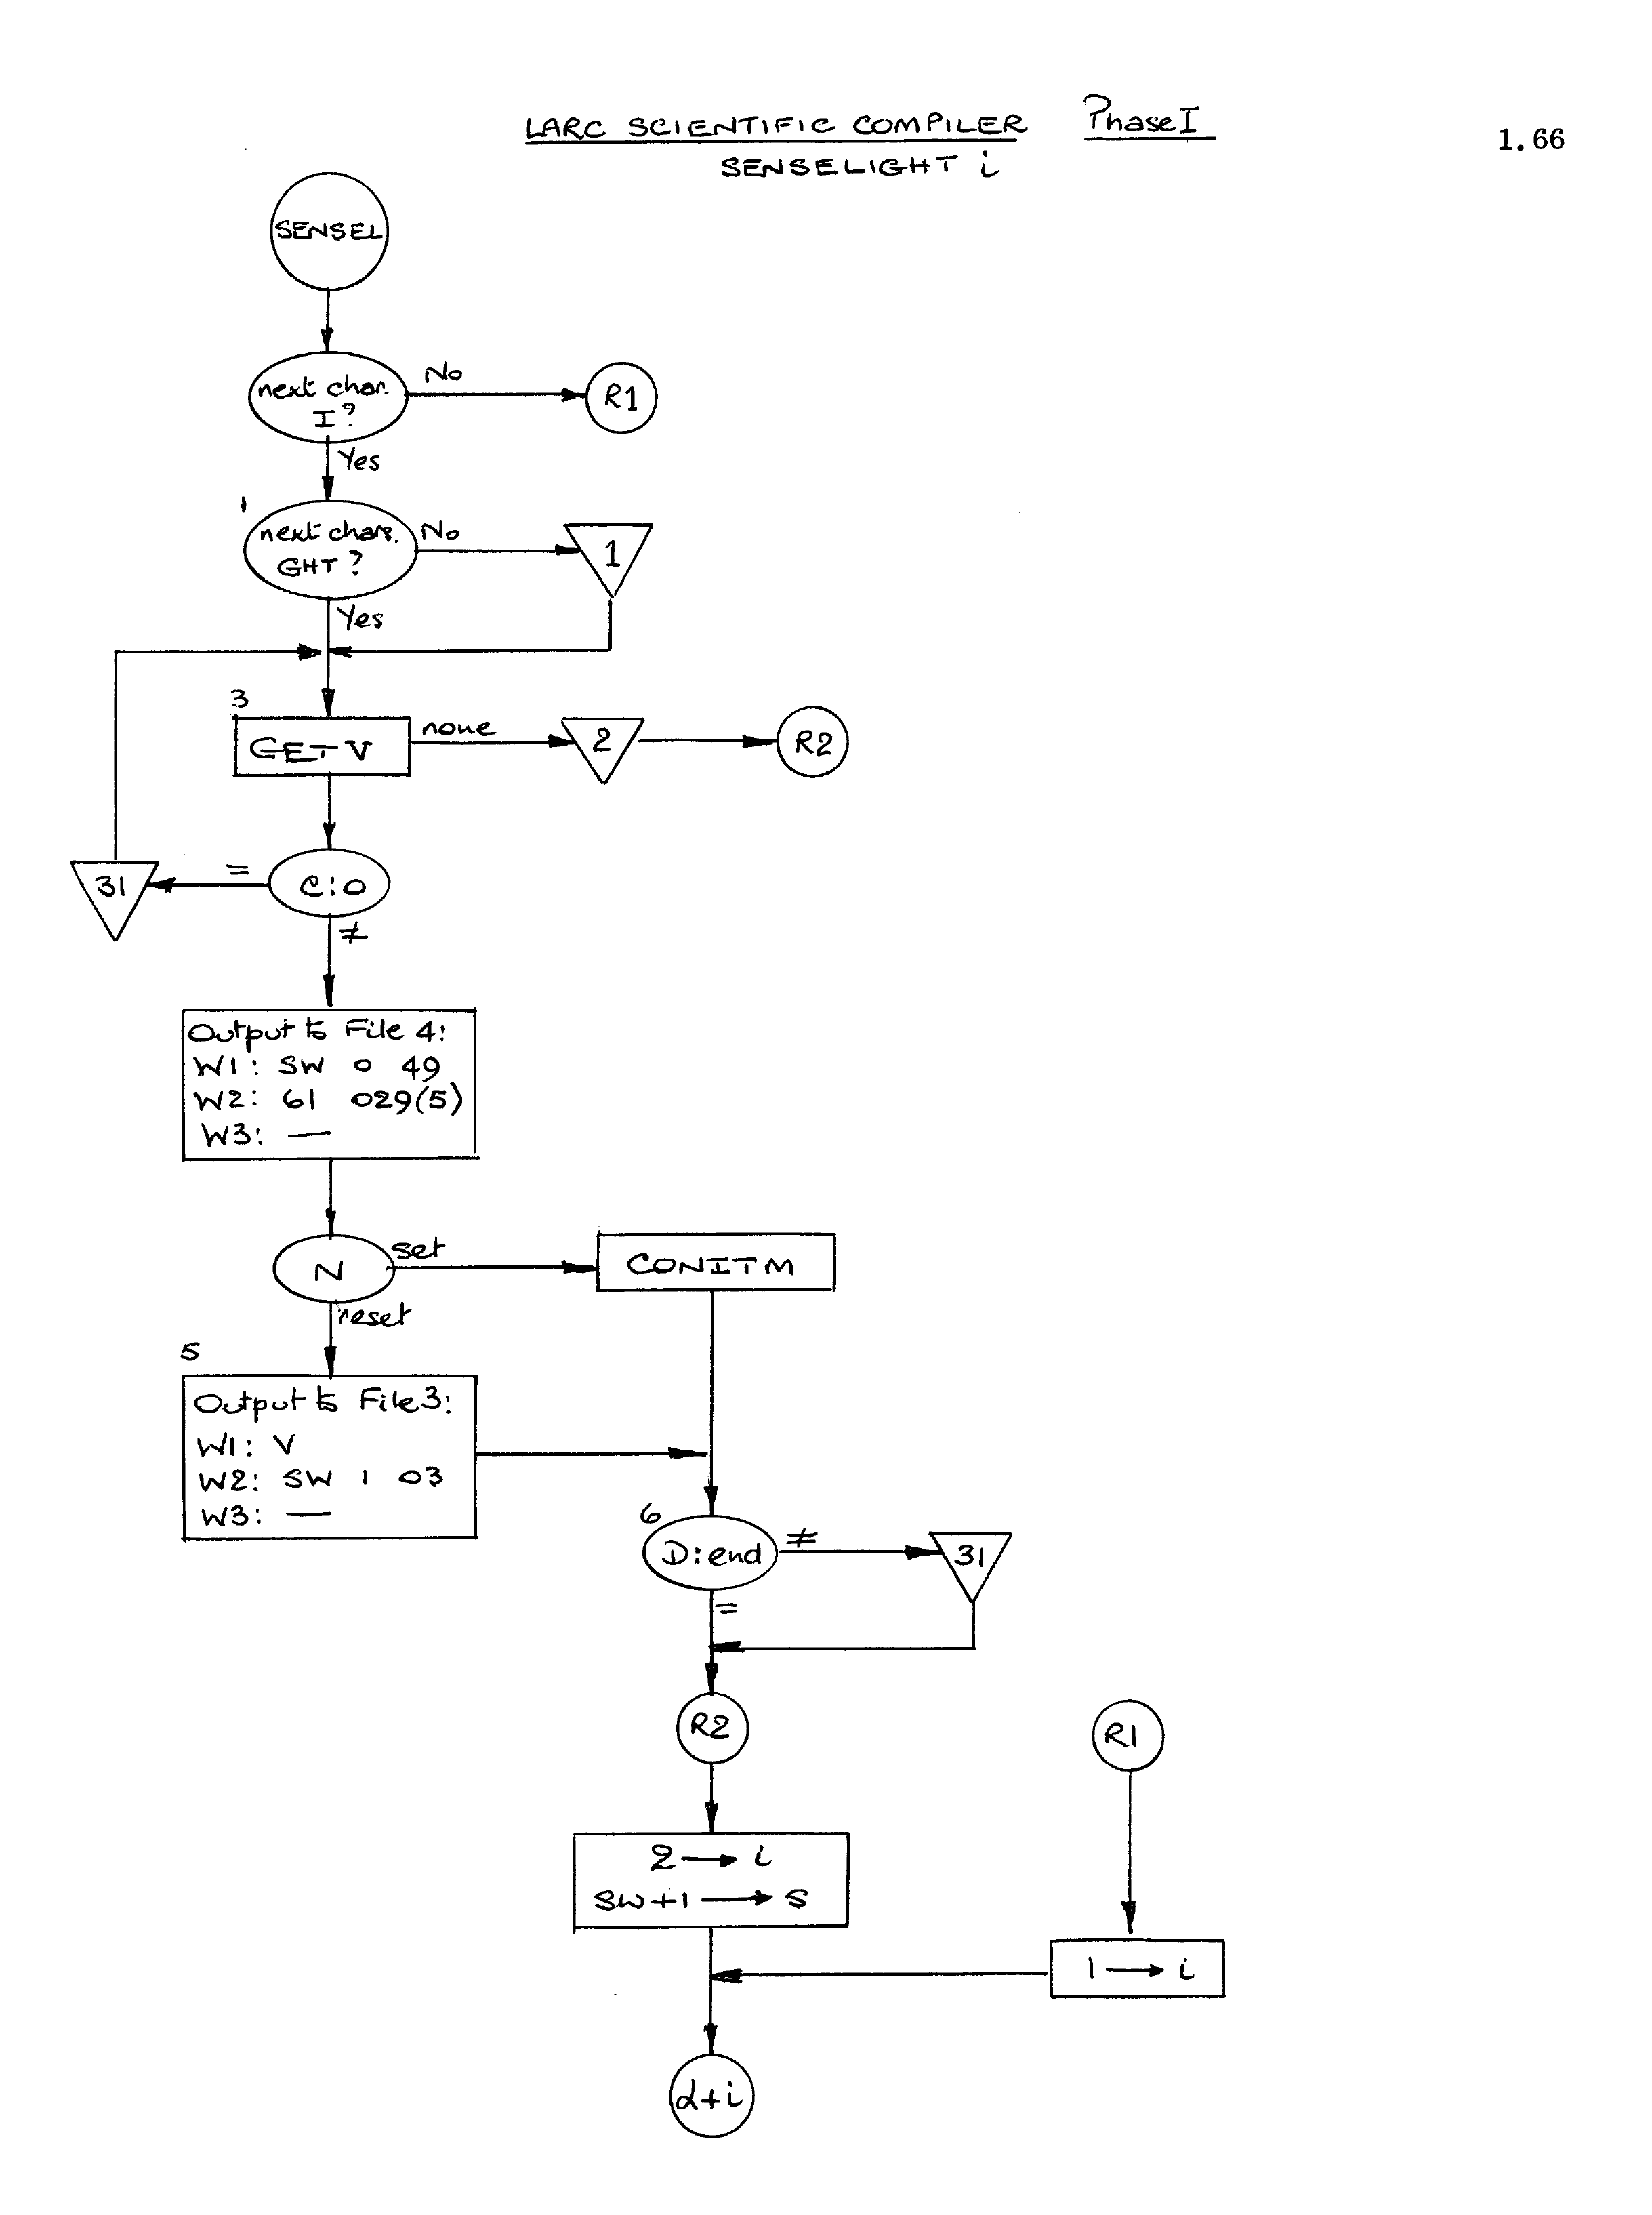 LARC SCIENTIFIC COMPILER Phase I
1.66
SENSELIGHT i
SENSEL
next char.
I?
No
R1
Yes
1
next chars.
GHT?
No
1
Yes
3
GETV
none
2
R2
31
=
C:0
≠
Output to File 4:
W1: SW 0 49
W2: 61 029(5)
W3: —
N
set
CONITM
reset
5
Output to File 3:
W1: V
W2: SW 1 03
W3: —
6
D:end
≠
31
=
R2
R1
2 → i
SW+1 → S
1 → i
α+i